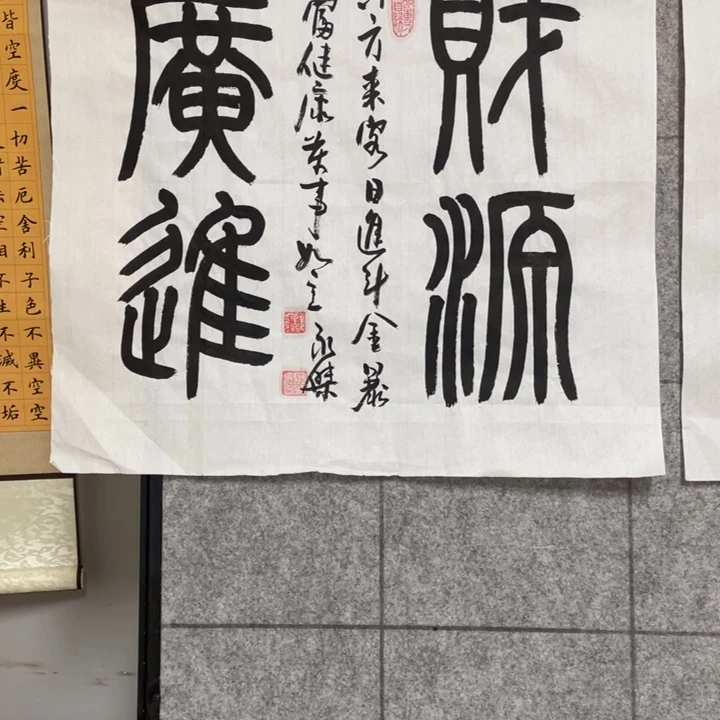 財源
方来客日進斗金
富健康萬事如意 永傑
廣進
皆空度一切苦厄舍利子色不異空空
不生不滅不垢